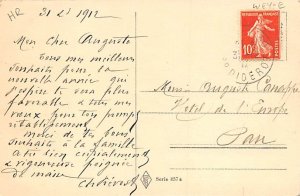 HR
31 Xbre 1912
Mon cher Auguste
Tous mes meilleurs
souhaits pour la
nouvelle année qui
j'espère te sera plus
favorable & tous mes
vœux pour ton prompt
rétablissement.
merci de tes bons
souhaits à ta famille
à toi bien cordialement
& vigoureuse poignée
de main
REPUBLIQUE FRANÇAISE
10c
POSTES
DIDEROT
Monsieur Auguste
Hotel de l'Europe
Pau
Serie 857